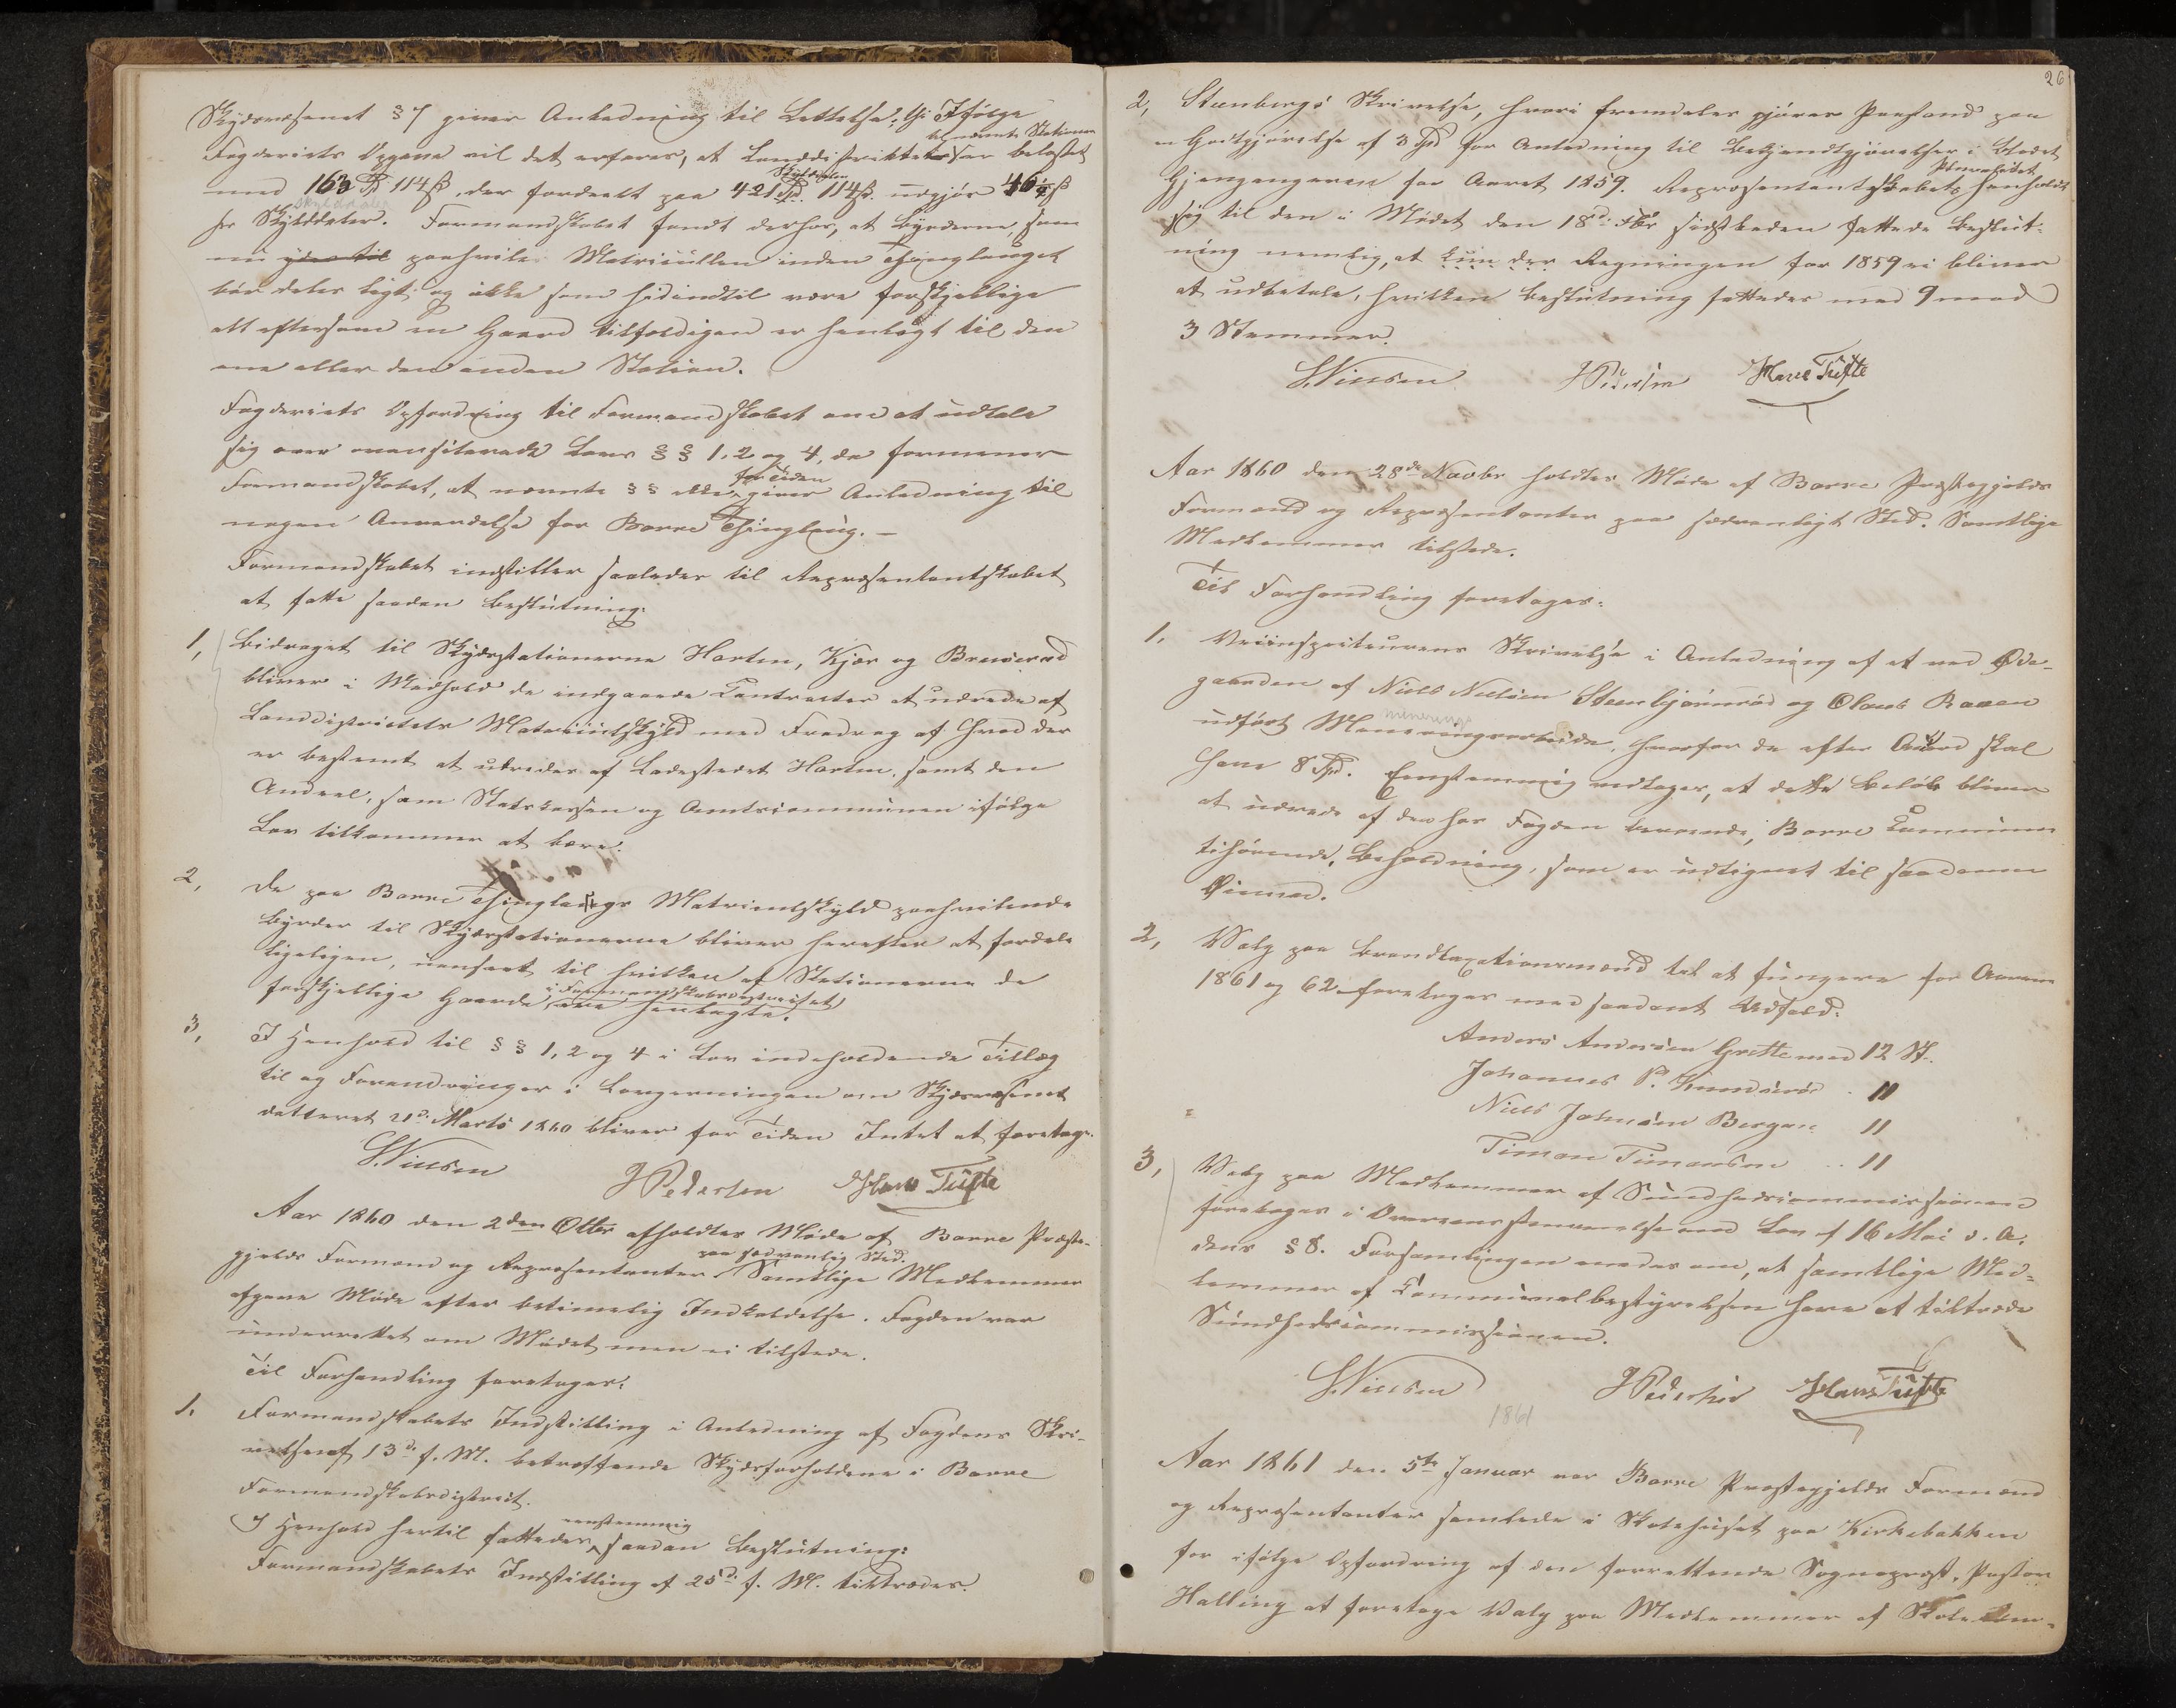 Skydsvæsenet § 7 giver Anledning til Lettelse. Ifølge
Fogderiets Opgave vil det erfares, at Landdistriktet for nævnte Stationer er belastet
med 163 Spd 114 ß, der fordeelt paa 421 Skylddaler 114 ß. udgjør 46½ ß
pr Skylddaler. Formandskabet fandt derhos, at Byrderne, som
nu paahviler Matriculen inden Thinglauget
bør deles ligt og ikke som hidindtil være forskjellige
alt eftersom en Gaard tilfældigen er henlagt til den
ene eller den anden Station.
Fogderiets Opfordring til Formandskabet om at udtale
sig over ovenciterede Lovs §§ 1, 2 og 4, da formener
Formandskabet, at nævnte §§ ikke for Tiden giver Anledning til
nogen Anvendelse for Borre Thinglaug. –
Formandskabet indstiller saaledes til Repræsentantskabet
at fatte saadan Beslutning:
1, Bidraget til Skydsstationerne Horten, Kjær og Bruserød
bliver i Medhold de indgaaede Contracter at udrede af
Landdistrictets Matriculskyld med Fradrag af hvad der
er bestemt at udredes af Ladestedet Horten, samt den
Andeel, som Statskassen og Amtscommunen ifølge
Lov tilkommer at bære.
2, De paa Borre Thinglaugs Matriculskyld paahvilende
Byrder til Skydsstationerne bliver herefter at fordele
ligeligen, uanseet til hvilken af Stationerne de
forskjellige Gaarde i Formandskabsdistrictet ere henlagte.
3, I Henhold til §§ 1, 2 og 4 i Lov indeholdende Tillæg
til og Forandringer i Lovgivningen om Skydsvæsenet
datteret 21d. Marts 1860 bliver for Tiden Intet at foretage.
S. Nielsen H Pedersen Hans Tufte
Aar 1860 den 2den Otbr afholdtes Møde af Borre Præste-
gjelds Formænd og Repræsentanter paa sædvanlig Sted. Samtlige Medlemmer
afgave Møde efter betimelig Indkaldelse. Fogden var
underrettet om Mødet men ei tilstede.
Til Forhandling foretoges:
1. Formandskabets Indstilling i Anledning af Fogdens Skri-
velse af 13d. f. M. betræffende Skydsforholdene i Borre
Formandskabsdistrict.
I Henhold hertil fattedes eenstemmig saadan Beslutning:
Formandskabets Indstilling af 25d. f. M. tiltrædes.
26
2, Steenbergs Skrivelse, hvori fremdeles gjøres Paastand paa
en Godtgjørelse af 3 Spd for Anledning til Bekjendtgjørelser i Bladet
Gjengangeren for Aaret 1859. Repræsentantskabets Pluralitet henholdt
sig til den i Mødet den 18d. sidstleden fattede Beslut-
ning nemlig, at Regningen for 1859 ei bliver
at udbetale, hvilken Beslutning fattedes med 9 mod
3 Stemmer.
S. Nielsen H Pedersen Hans Tufte
Aar 1860 den 28de Novbr holdtes Møde af Borre Præstegjelds
Formænd og Repræsentanter paa sædvanligt Sted. Samtlige
Medlemmer tilstede.
Til Forhandling foretoges:
1. Veiinspecteurens Skrivelse i Anledning af et ved Øde-
gaarden af Niels Nielsen Steenbjørnrød og Olaus Raaen
udført Mineringsarbeide, hvorfor de efter Accord skal
have 8 Spd. Eenstemmig vedtoges, at dette Beløb bliver
at udrede af den hos Fogden beroende, Borre Commune
tilhørende, Beholdning, som er udlignet til saadanne
Øiemed.
2, Valg paa Brandtaxationsmænd til at fungere for Aarene
1861 og 62 foretoges med saadant Udfald:
Anders Andersen Grette med 12 St.
Johannes P. 11
Niels Johnsen Bergan 11
Timan Timansen .. 11
3, Valg paa Medlemmer af Sundhedscommissionen
foretoges i Overeensstemmelse med Lov af 16 Mai d. A.
dens § 8. Forsamlingen enedes om, at samtlige Med-
lemmer af Communalbestyrelsen have at tiltræde
Sundhedscommissionen.
S. Nielsen H Pedersen Hans Tufte
1861
Aar 1861 den 5te Januar var Borre Præstegjelds Formænd
og Repræsentanter samlede i Skolehuset paa Kirkebakken
for ifølge Opfordring af den forrettende Sognepræst, Pastor
Halling at foretage Valg paa Medlemmer af Skolecom-